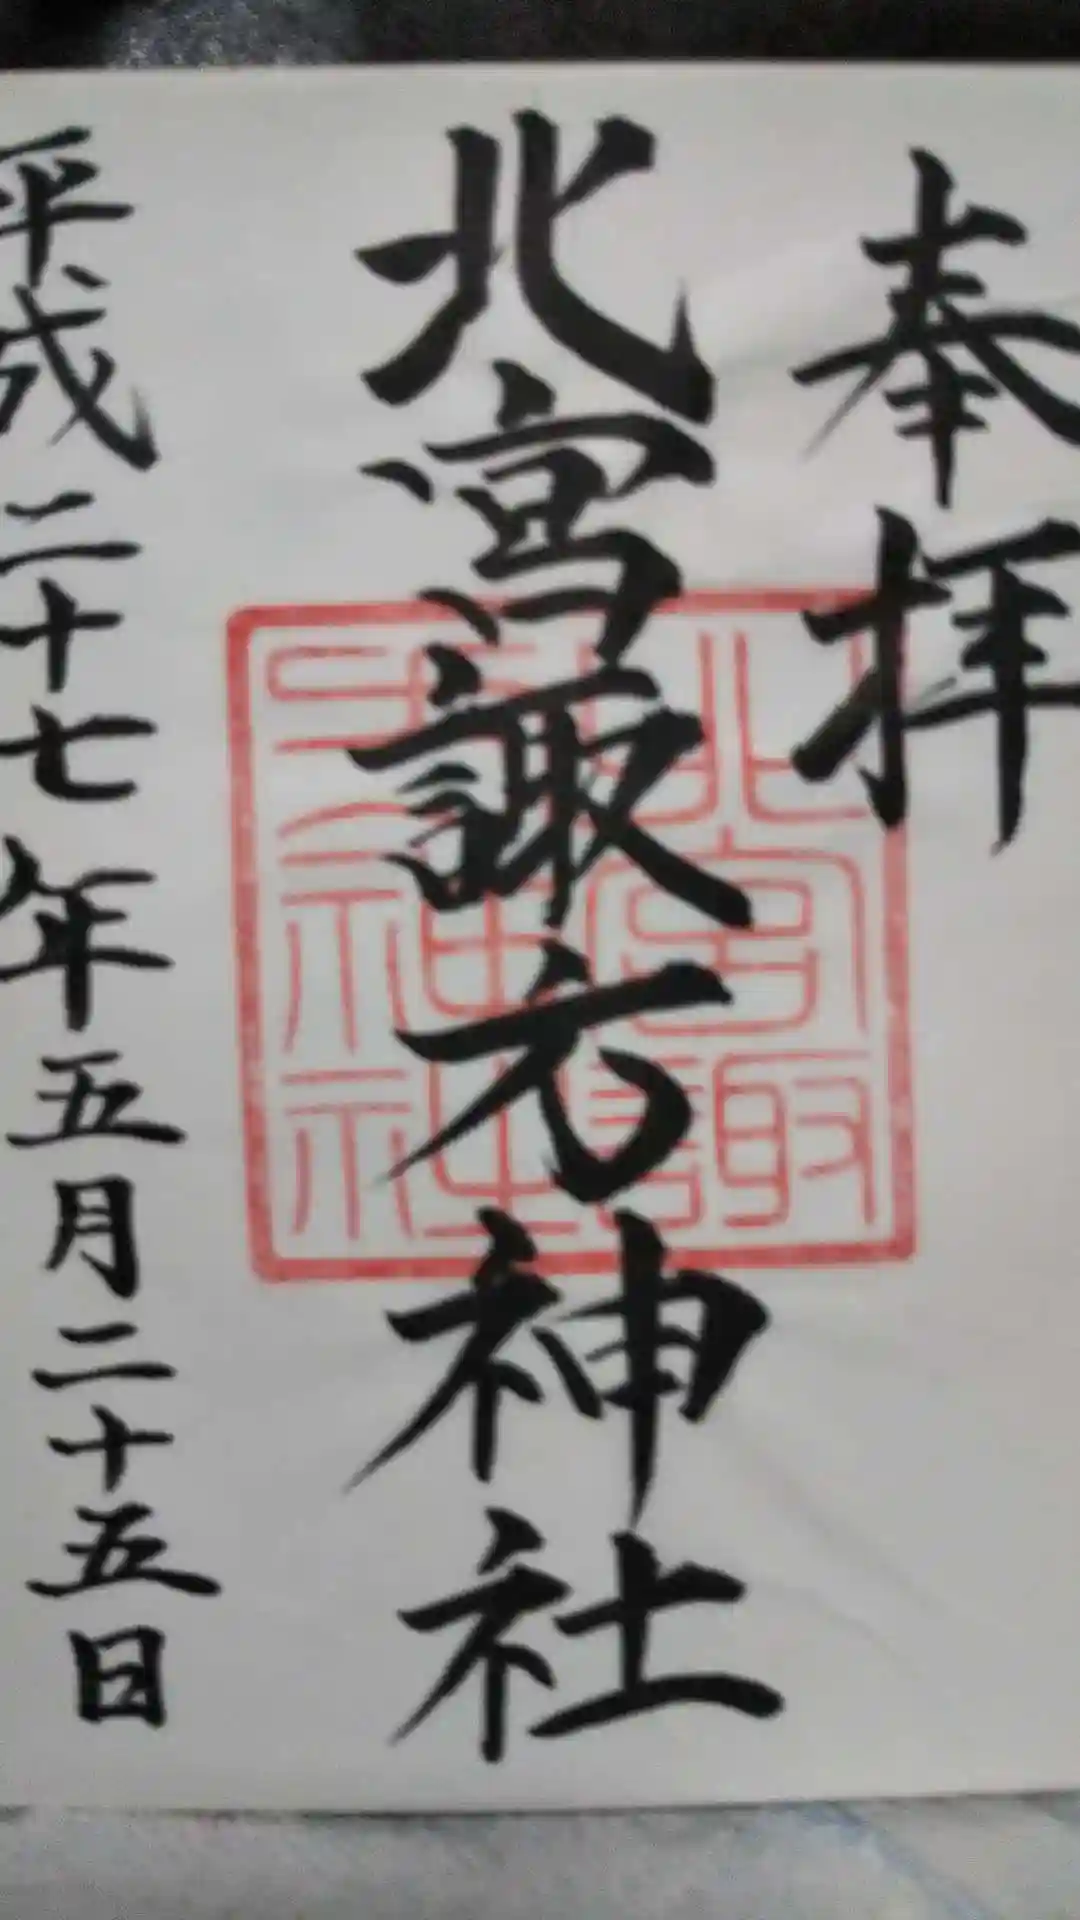 奉拝
北宮諏方神社
北宮諏方神社
平成二十七年五月二十五日